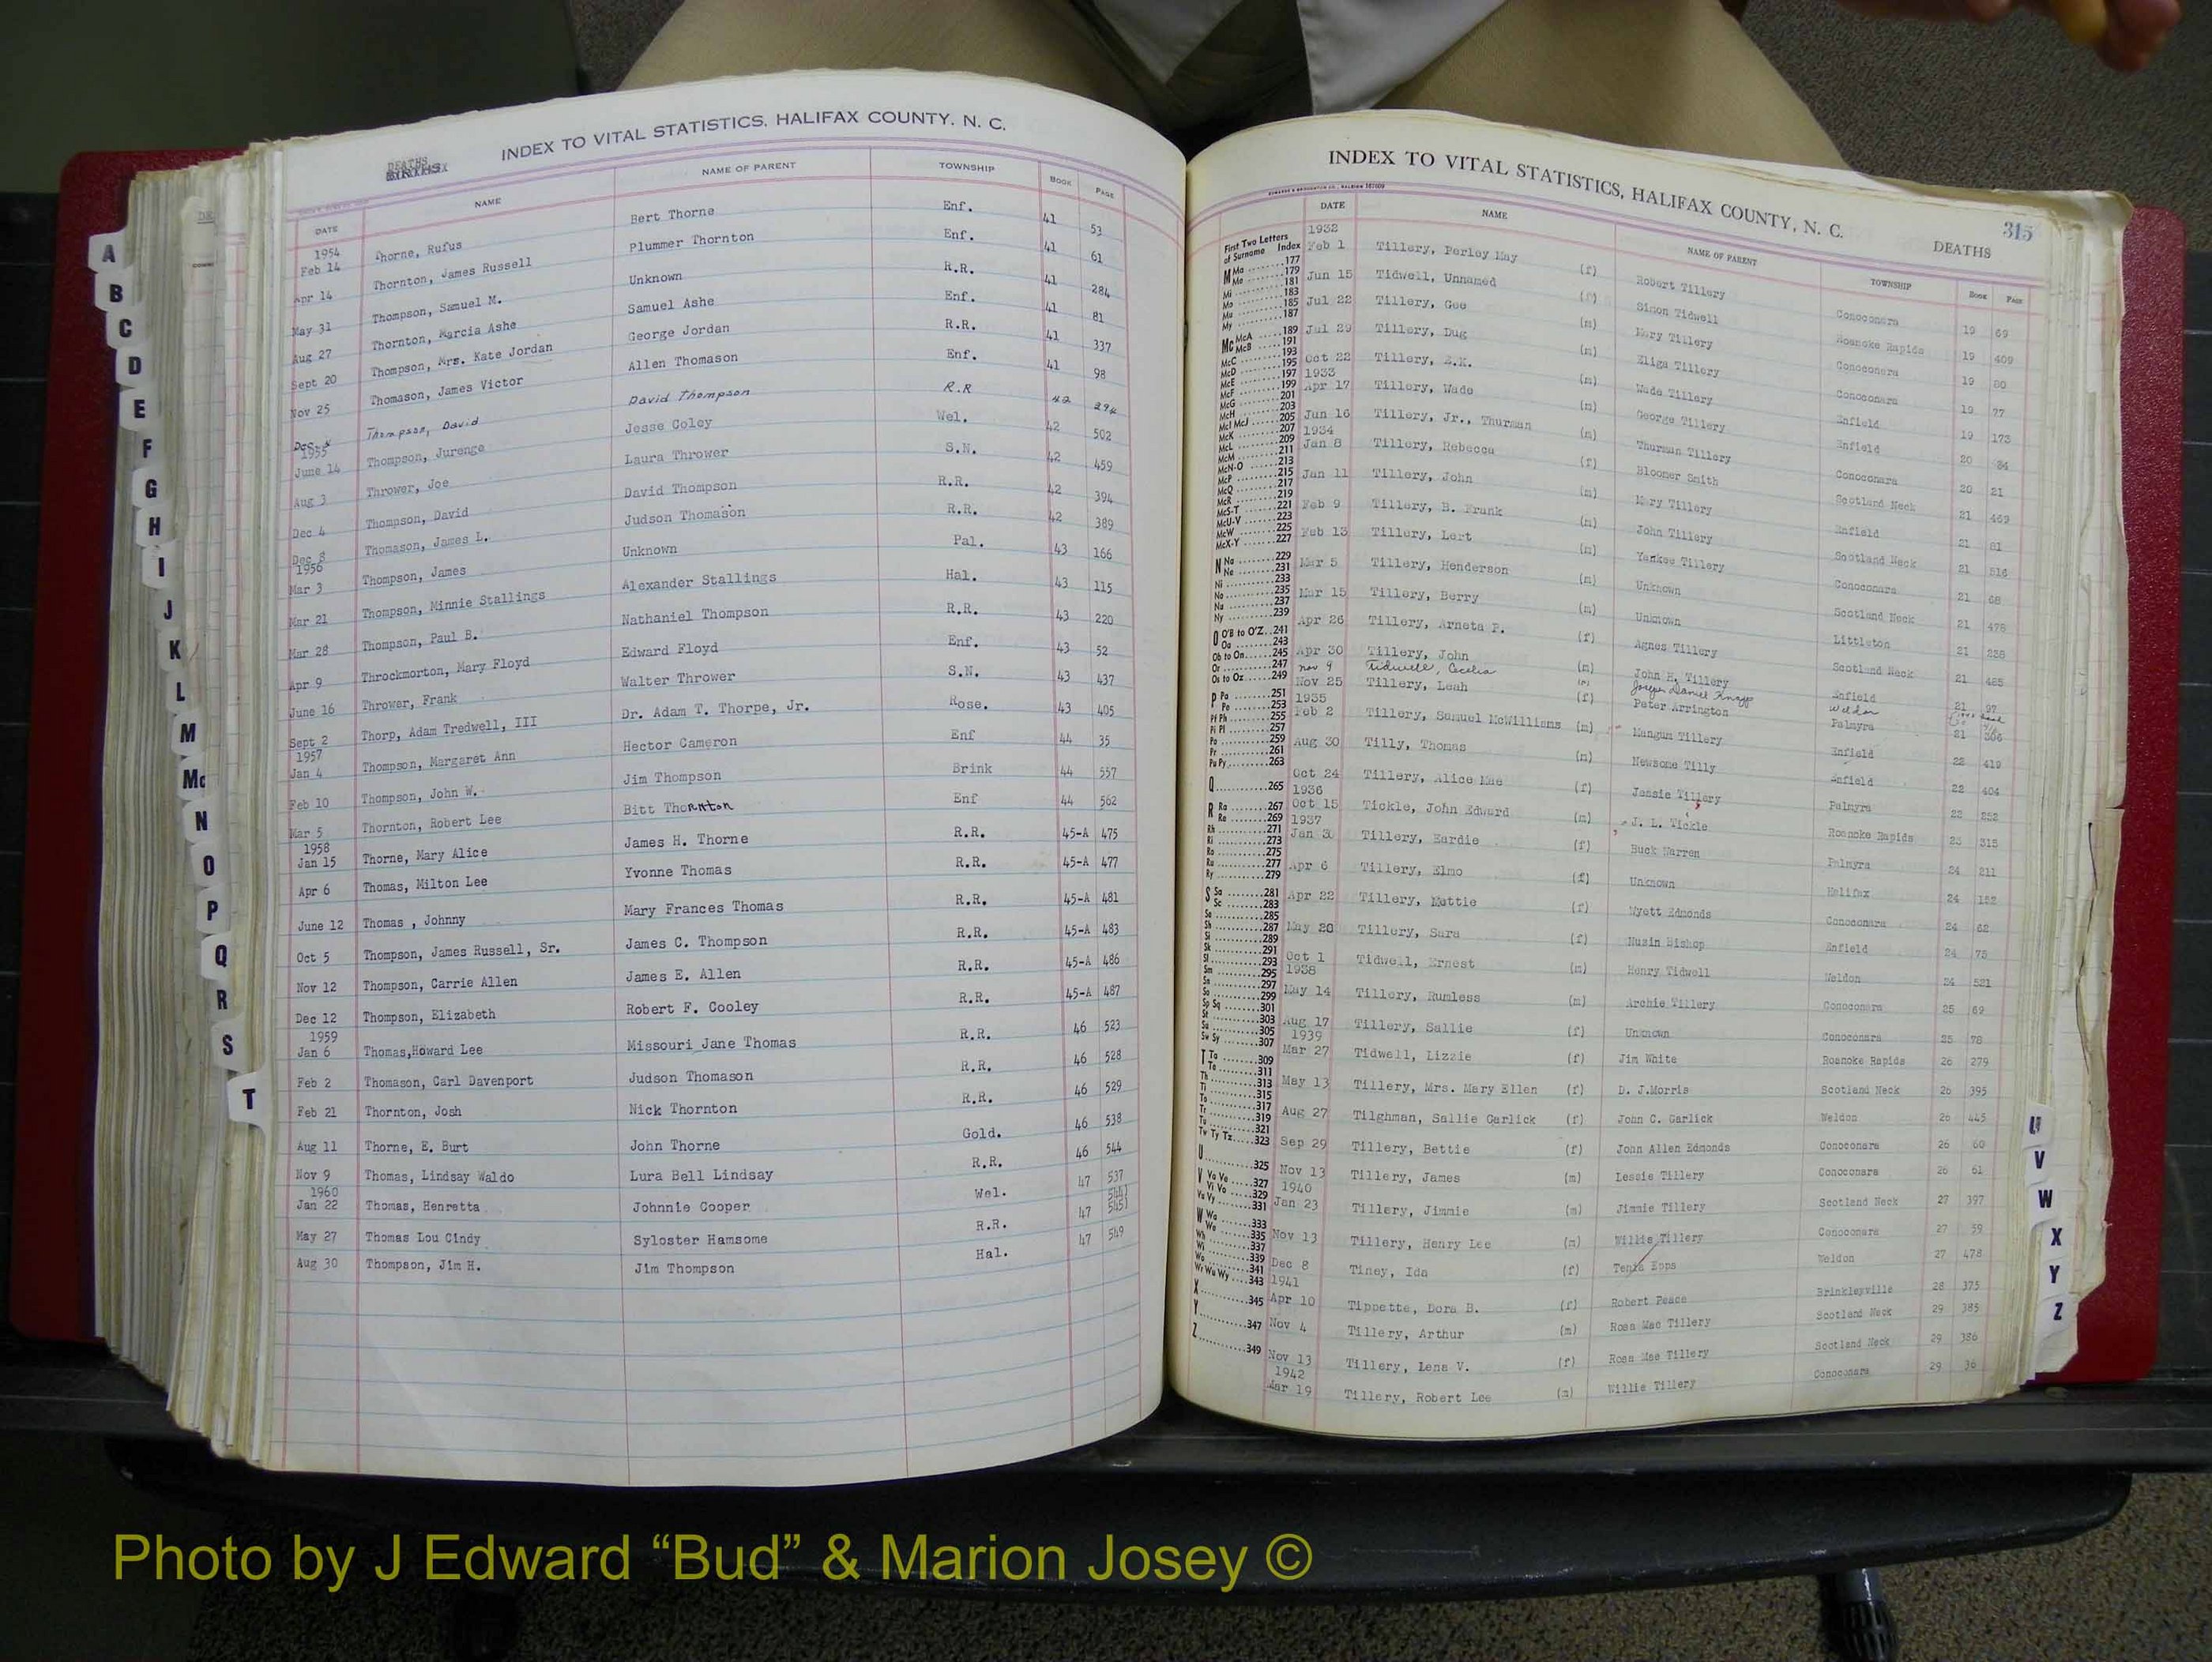 INDEX TO VITAL STATISTICS, HALIFAX COUNTY, N. C.
DEATHS
BIRTHS
DATE NAME NAME OF PARENT TOWNSHIP BOOK PAGE
1954
Feb 14 Thorne, Rufus Bert Thorne Enf. 41 53
Apr 14 Thornton, James Russell Plummer Thornton Enf. 41 61
May 31 Thompson, Samuel M. Unknown R.R. 41 284
Aug 27 Thornton, Marcia Ashe Samuel Ashe Enf. 41 81
Sept 20 Thompson, Mrs. Kate Jordan George Jordan R.R. 41 337
Nov 25 Thomason, James Victor Allen Thomason Enf. 41 98
Dec Thompson, David David Thompson R.R 42 294
1955
June 14 Thompson, Jurenge Jesse Coley Wel. 42 502
Aug 3 Thrower, Joe Laura Thrower S.N. 42 459
Dec 4 Thompson, David David Thompson R.R. 42 394
Dec 8 Thomason, James L. Judson Thomason R.R. 42 389
1956
Mar 3 Thompson, James Unknown Pal. 43 166
Mar 21 Thompson, Minnie Stallings Alexander Stallings Hal. 43 115
Mar 28 Thompson, Paul B. Nathaniel Thompson R.R. 43 220
Apr 9 Throckmorton, Mary Floyd Edward Floyd Enf. 43 52
June 16 Thrower, Frank Walter Thrower S.N. 43 437
Sept 2 Thorp, Adam Tredwell, III Dr. Adam T. Thorpe, Jr. Rose. 43 405
1957
Jan 4 Thompson, Margaret Ann Hector Cameron Enf 44 35
Feb 10 Thompson, John W. Jim Thompson Brink 44 557
Mar 5 Thornton, Robert Lee Bitt Thornton Enf 44 562
1958
Jan 15 Thorne, Mary Alice James H. Thorne R.R. 45-A 475
Apr 6 Thomas, Milton Lee Yvonne Thomas R.R. 45-A 477
June 12 Thomas , Johnny Mary Frances Thomas R.R. 45-A 481
Oct 5 Thompson, James Russell, Sr. James C. Thompson R.R. 45-A 483
Nov 12 Thompson, Carrie Allen James E. Allen R.R. 45-A 486
Dec 12 Thompson, Elizabeth Robert F. Cooley R.R. 45-A 487
1959
Jan 6 Thomas,Howard Lee Missouri Jane Thomas R.R. 46 523
Feb 2 Thomason, Carl Davenport Judson Thomason R.R. 46 528
Feb 21 Thornton, Josh Nick Thornton R.R. 46 529
Aug 11 Thorne, E. Burt John Thorne Gold. 46 538
Nov 9 Thomas, Lindsay Waldo Lura Bell Lindsay R.R. 46 544
1960
Jan 22 Thomas, Henretta Johnnie Cooper Wel. 47 537
May 27 Thomas Lou Cindy Syloster Hamsome R.R. 47
Aug 30 Thompson, Jim H. Jim Thompson Hal. 47 549
A
B
C
D
E
F
G
H
I
J
K
L
M
Mc
N
O
P
Q
R
S
T
INDEX TO VITAL STATISTICS, HALIFAX COUNTY, N. C.
315
DEATHS
DATE NAME NAME OF PARENT TOWNSHIP BOOK PAGE
1932
Feb 1 Tillery, Perley May (f) Robert Tillery Conoconara 19 69
Jun 15 Tidwell, Unnamed (f) Simon Tidwell Roanoke Rapids 19 409
Jul 22 Tillery, Gee (m) Mary Tillery Conoconara 19 80
Jul 29 Tillery, Dug (m) Eliga Tillery Conoconara 19 77
Oct 22 Tillery, E.K. (m) Wade Tillery Enfield 19 173
1933
Apr 17 Tillery, Wade (m) George Tillery Enfield 20 84
Jun 16 Tillery, Jr., Thurman (m) Thurman Tillery Conoconara 20 21
1934
Jan 8 Tillery, Rebecca (f) Bloomer Smith Scotland Neck 21 469
Jan 11 Tillery, John (m) Mary Tillery Enfield 21 81
Feb 9 Tillery, B. Frank (m) John Tillery Scotland Neck 21 516
Feb 13 Tillery, Lert (m) Yankee Tillery Conoconara 21 68
Mar 5 Tillery, Henderson (m) Unknown Scotland Neck 21 478
Mar 15 Tillery, Berry (m) Unknown Littleton 21 238
Apr 26 Tillery, Arneta P. (f) Agnes Tillery Scotland Neck 21 485
Apr 30 Tillery, John (m) John H. Tillery Enfield 21 97
Nov 9 Tidwell, Cecelia Joseph Daniel Knapp Weldon
Nov 25 Tillery, Leah (f) Peter Arrington Palmyra 21 306
1935
Feb 2 Tillery, Samuel McWilliams (m) Mangum Tillery Enfield 22 419
Aug 30 Tilly, Thomas (m) Newsome Tilly Enfield 22 404
Oct 24 Tillery, Alice Mae (f) Jessie Tillery Palmyra 22 252
1936
Oct 15 Tickle, John Edward (m) J. L. Tickle Roanoke Rapids 23 315
1937
Jan 3 Tillery, Eardie (f) Buck Warren Palmyra 24 211
Apr 6 Tillery, Elmo (f) Unknown Halifax 24 152
Apr 22 Tillery, Mattie (f) Wyatt Edmonds Conoconara 24 62
May 20 Tillery, Sara (f) Rusin Bishop Enfield 24 75
Oct 1 Tidwell, Ernest (m) Henry Tidwell Weldon 24 521
1938
May 14 Tillery, Rumless (m) Archie Tillery Conoconara 25 69
Aug 17 Tillery, Sallie (f) Unknown Conoconara 25 78
1939
Mar 27 Tidwell, Lizzie (f) Jim White Roanoke Rapids 26 279
May 13 Tillery, Mrs. Mary Ellen (f) D. J.Morris Scotland Neck 26 395
Aug 27 Tilghman, Sallie Garlick (f) John C. Garlick Weldon 26 445
Sep 29 Tillery, Bettie (f) John Allen Edmonds Conoconara 26 60
Nov 13 Tillery, James (m) Lessie Tillery Conoconara 26 61
1940
Jan 23 Tillery, Jimmie (m) Jimmie Tillery Scotland Neck 27 397
Nov 13 Tillery, Henry Lee (m) Willie Tillery Conoconara 27 59
Dec 8 Tiney, Ida (f) Tenia Epps Weldon 27 478
1941
Apr 10 Tippette, Dora B. (f) Robert Peace Brinkleyville 28 375
Nov 4 Tillery, Arthur (m) Rosa Mae Tillery Scotland Neck 29 385
Nov 13 Tillery, Lena V. (f) Rosa Mae Tillery Scotland Neck 29 386
1942
Mar 19 Tillery, Robert Lee (m) Willie Tillery Conoconara 29 36
First Two Letters
of Surname Index
M Ma 177
Me 179
Mi 181
Mo 183
Mu 185
My 187
Mc McA 189
McB 191
McC 193
McD 195
McE 197
McF 199
McG 201
McH 203
McI McJ 205
McK 207
McL 209
McM 211
McN-O 213
McP 215
McQ 217
McR 219
McS-T 221
McU-V 223
McW 225
McX-Y 227
N Na 229
Ne 231
Ni 233
No 235
Nu 237
Ny 239
O O'B to O'Z 241
Oa 243
Ob to On 245
Or 247
Os to Oz 249
P Pa 251
Pe 253
Pf Ph 255
Pi Pl 257
Po 259
Pr 261
Pu Py 263
Q 265
R Ra 267
Re 269
Rh 271
Ri 273
Ro 275
Ru 277
Ry 279
S Sa 281
Sc 283
Se 285
Sh 287
Si 289
Sk 291
Sl 293
Sm 295
Sn 297
So 299
Sp Sq 301
St 303
Su 305
Sw Sy 307
T Ta 309
Te 311
Th 313
Ti 315
To 317
Tr 319
Tu 321
Tw Ty Tz 323
U 325
V Va Ve 327
Vi Vo 329
Vu Vy 331
W Wa 333
We 335
Wh 337
Wi 339
Wo 341
Wr Wu Wy 343
X 345
Y 347
Z 349
U
V
W
X
Y
Z
Photo by J Edward “Bud” & Marion Josey ©